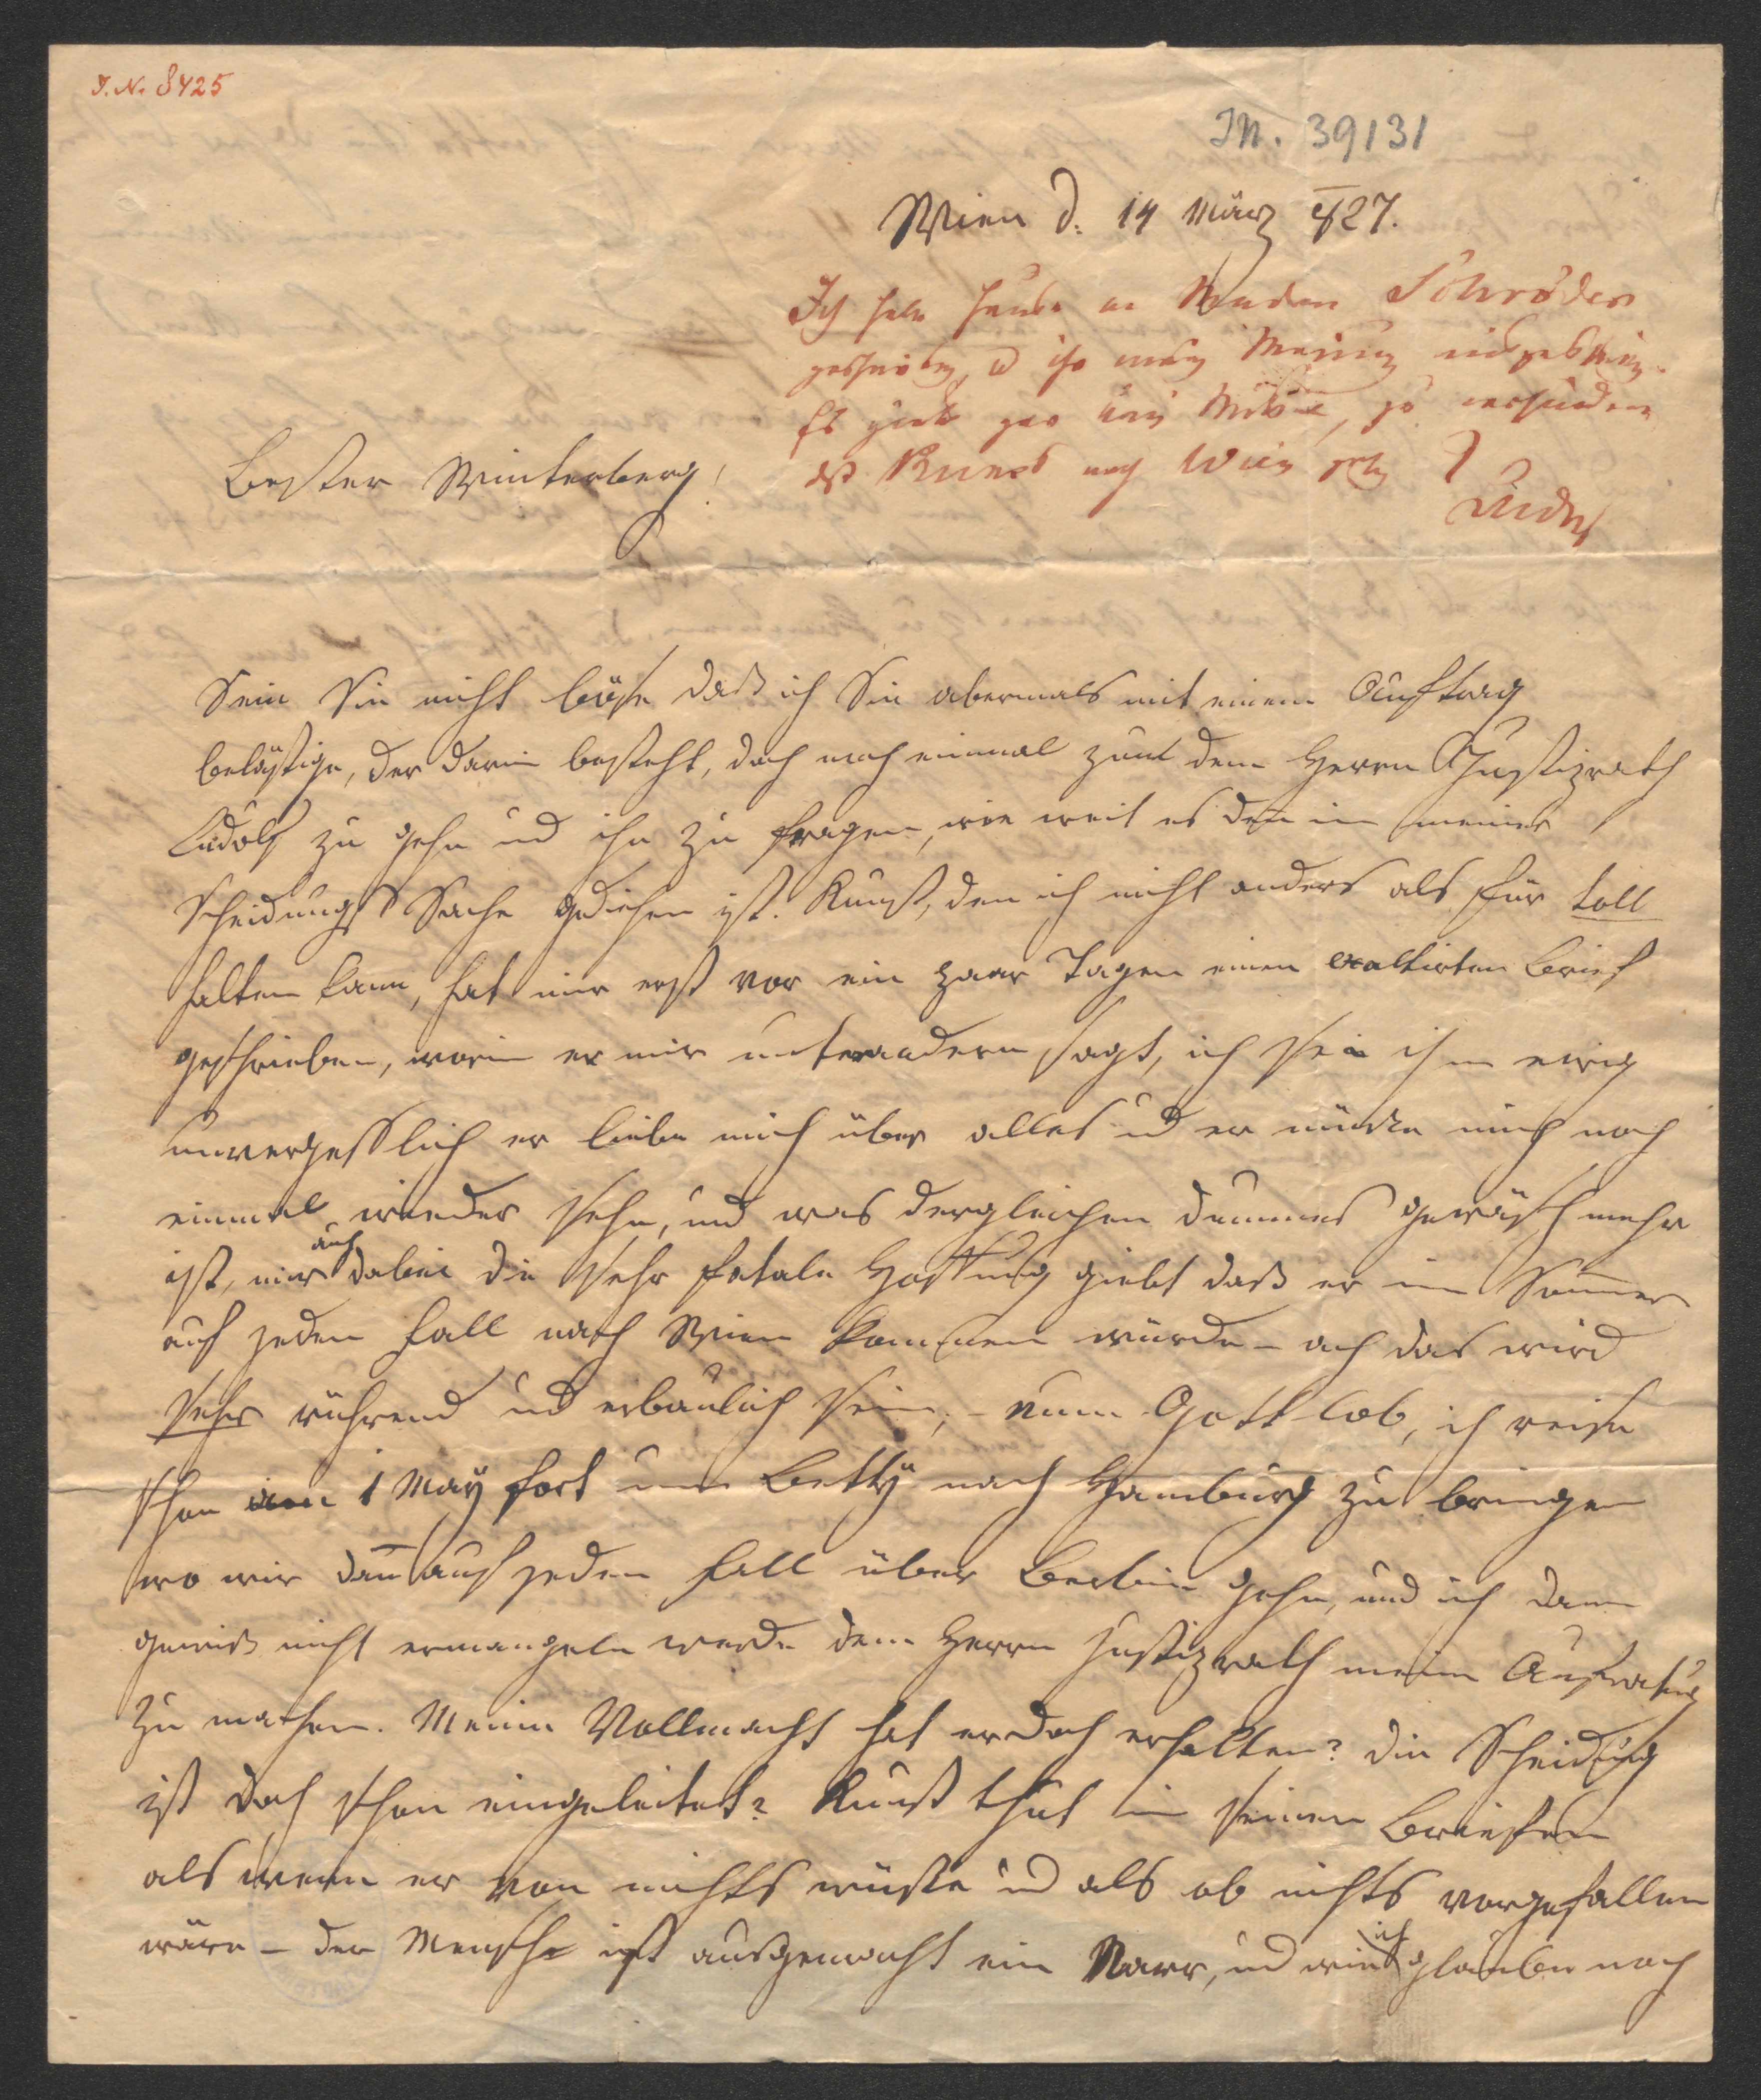 I.N. 8425
IN. 39131
Wien d. 14 März 827.
Ich habe heute an Madam Schröder
geschrieben, u ihr meine Meinung
Es giebt gar kein Mittel, zu verhindern
dß Kunst nach Wien geht
Ludolf
Bester Winterberg!
Sein Sie nicht böse daß ich Sie abermals mit einem Auftrag
belästige, der darin besteht, doch noch einmal zu dem Herrn Justizrath
Ludolf zu gehn und ihn zu fragen, wie weit es den in meiner
Scheidungs Sache gediehen ist. Kunst, den ich nicht anders als für toll
halten kann, hat mir erst vor ein paar Tagen einen exaltirten Brief
geschrieben, worin er mir unterandern sagt, ich sei ihm ewig
unvergesslich er liebe mich über alles und er müsse mich noch
einmal wieder sehn, und was dergleichen dummes gewäsch mehr
ist, mir auch dabei die sehr fatale Hoffnung giebt daß er im Sommer
auf jeden Fall nach Wien kommen würde – ach das wird
sehr rührend und erbaulich sein, – nun Gott lob, ich reise
schon am 1 May fort um Betty nach Hamburg zu bringen
wo wir dann auf jeden Fall über Berlin gehn, und ich dann
gewiß nicht ermangeln werde dem Herrn Justizrath meine Aufwartung
zu machen. Meine Vollmacht hat er doch erhalten? die Scheidung
ist doch schon eingeleitet? Kunst thut in seinen Briefen
als wenn er von nichts wüßte und als ob nichts vorgefallen
wäre – der Mensch ist ausgemacht ein Narr, und wie ich glaube noch